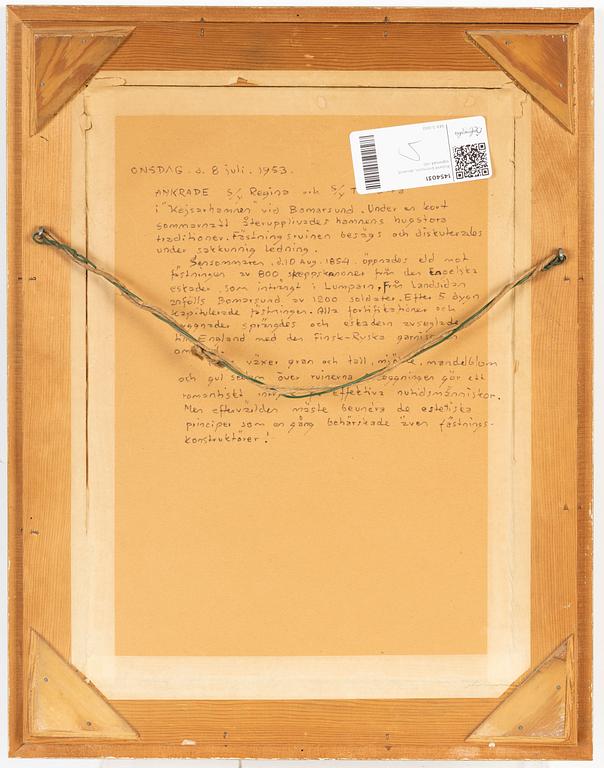 ONSDAG . d. 8 juli . 1953.
ANKRADE S/Y Regina och S/Y
i "Kejsarhamnen" vid Bomarsund. Under en kort
sommarnatt återupplivades hamnens hugstora
traditioner. Fästningsruinen besågs och diskuterades
under sakkunnig ledning.
Sensommaren, d. 10 Aug. 1854 öppnades eld mot
fästningen av 800 skeppskanoner från den Engelska
eskader, som inträngt i Lumparn. Från landsidan
anfölls Bomarsund av 1200 soldater. Efter 5 dygn
kapitulerade fästningen. Alla fortifikationer och
byggnader sprängdes och eskadern avseglade
till England med den Finsk-Ryska garnisonen
växer gran och tall, mandelblom
och gul sedum över ruinerna. gör ett
romantiskt effektiva nutidsmänniskor.
Men eftervärlden måste beundra de estetiska
principer som en gång behärskade även fästnings-
konstruktörer!
1454031